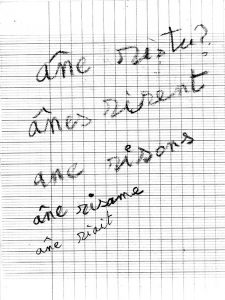 âne ris tu?
ânes rirent
ane risons
âne risame
âne riait